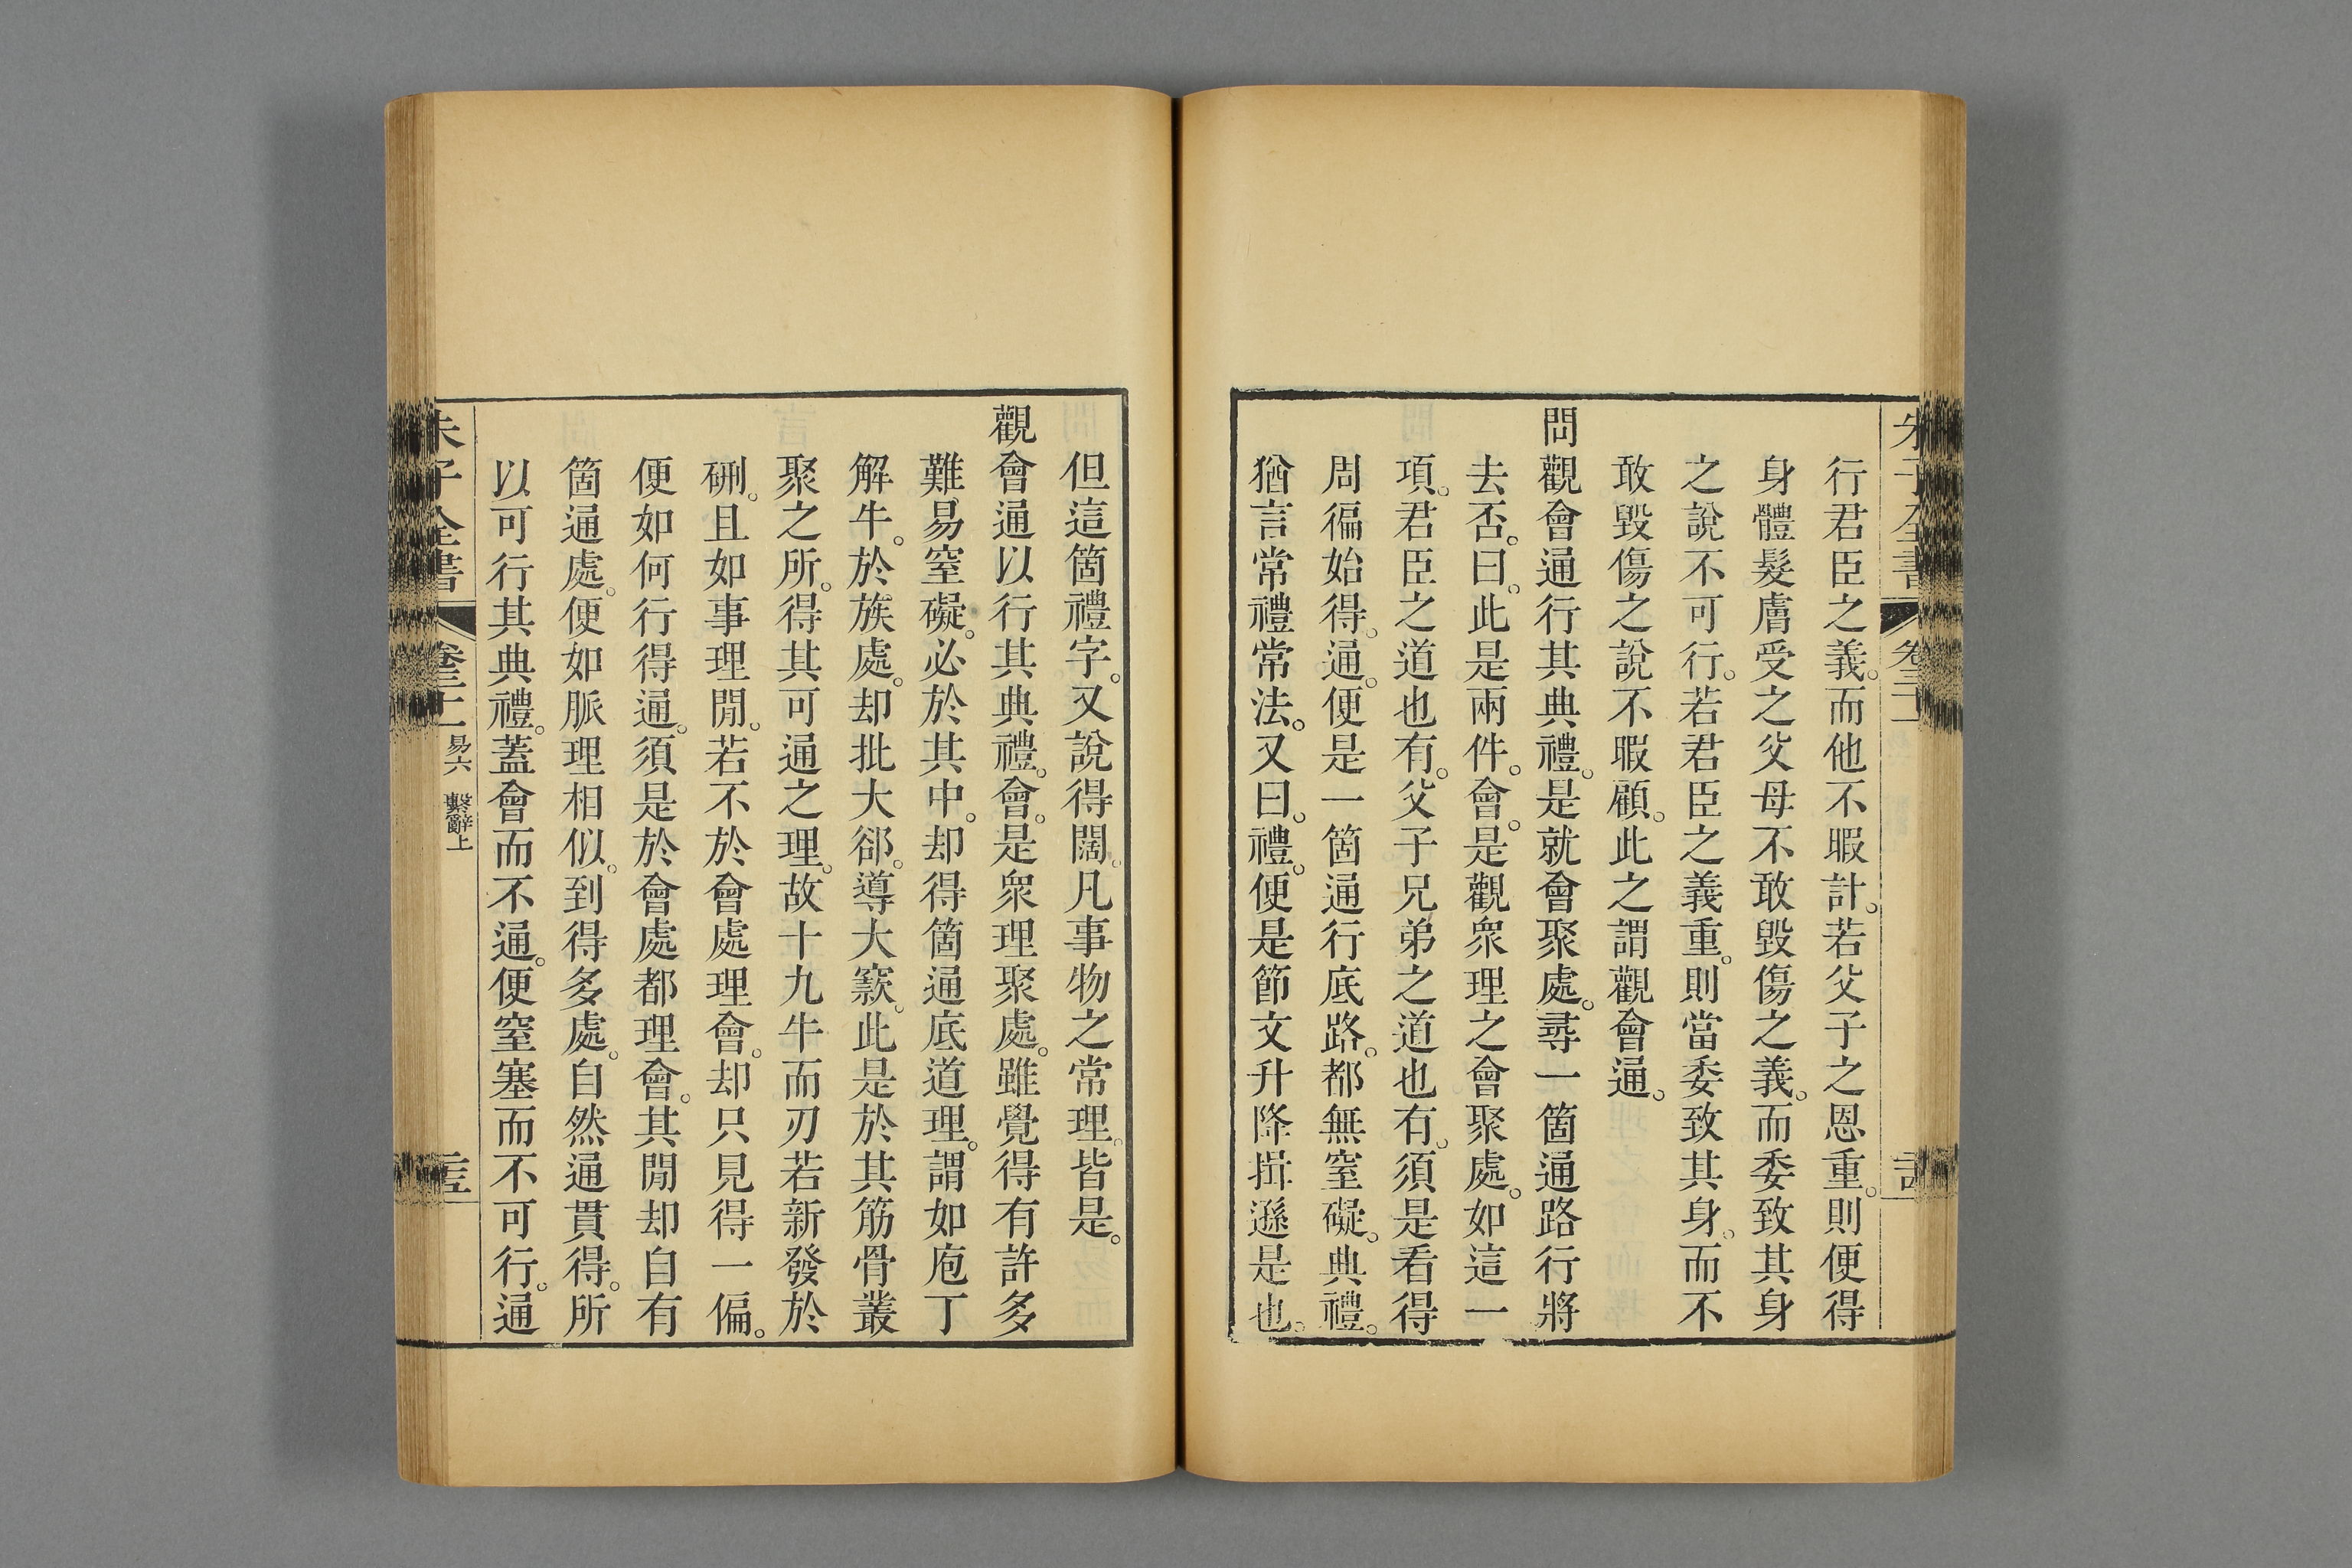 行君臣之義。而他不暇計。若父子之恩重。則便得
身體髮膚受之父母不敢毀傷之義。而委致其身
之說不可行。若君臣之義重。則當委致其身。而不
敢毀傷之說不暇顧。此之謂觀會通。
問觀會通行其典禮。是就會聚處。尋一箇通路行將
去否。曰。此是兩件。會。是觀衆理之會聚處。如這一
項。君臣之道也有。父子兄弟之道也有。須是看得
周徧始得。通。便是一箇通行底路。都無窒礙。典禮。
猶言常禮常法。又曰。禮。便是節文升降揖遜是也。
但這箇禮字。又說得闊。凡事物之常理。皆是。
觀會通以行其典禮。會。是衆理聚處。雖覺得有許多
難易窒礙。必於其中。却得箇通底道理。謂如庖丁
解牛。於族處。却批大郤。導大窾。此是於其筋骨叢
聚之所。得其可通之理。故十九牛而刃若新發於
硎。且如事理閒。若不於會處理會。却只見得一偏。
便如何行得通。須是於會處都理會。其閒却自有
箇通處。便如脈理相似。到得多處。自然通貫得。所
以可行其典禮。蓋會而不通。便窒塞而不可行。通
朱子全書
易六 繫辭上